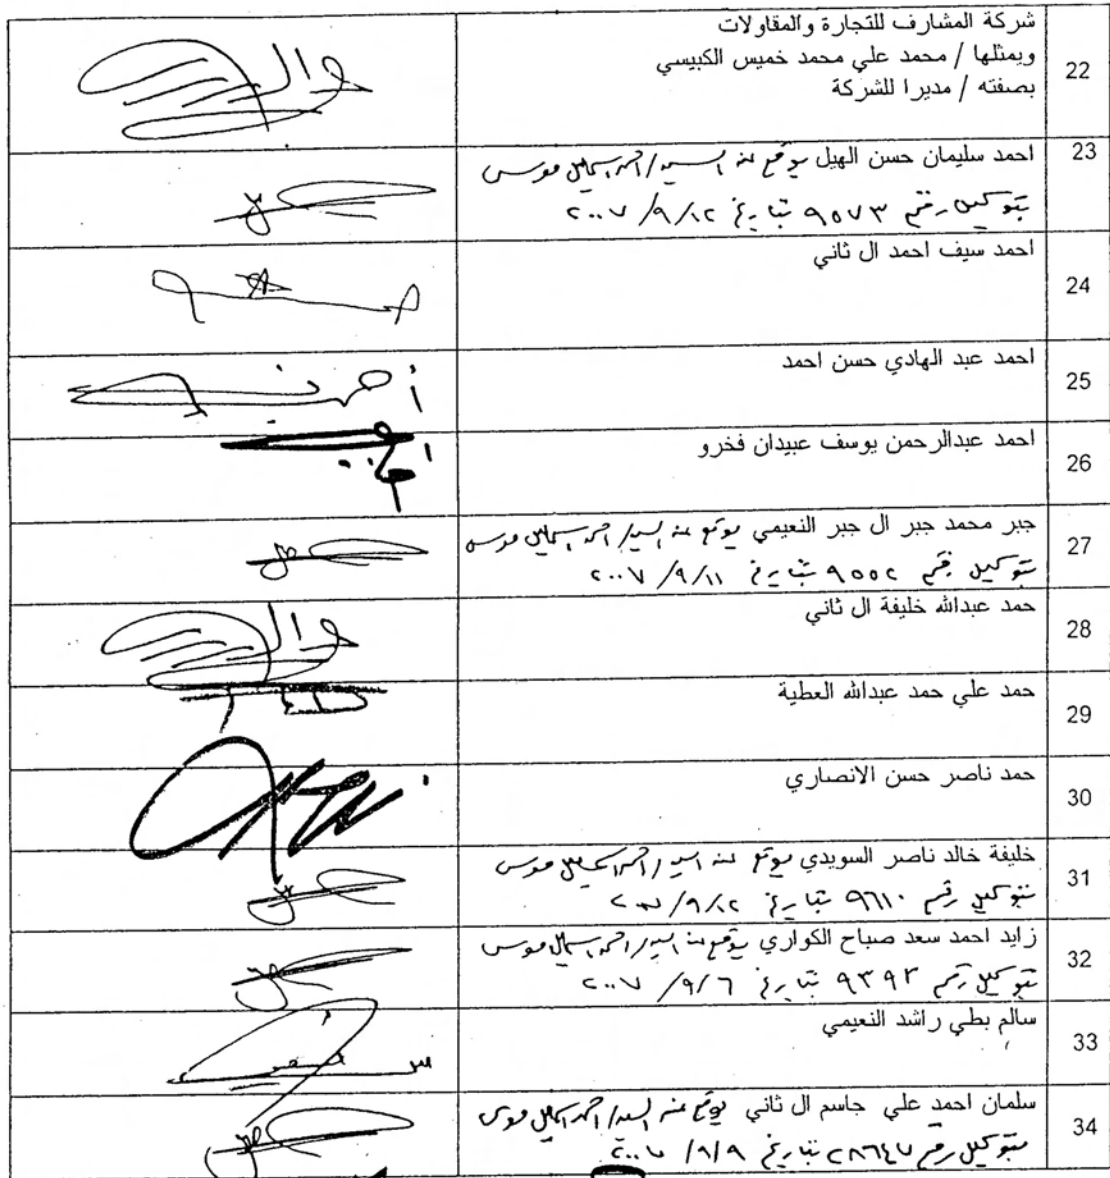 22
شركة المشارف للتجارة والمقاولات
ويمثلها / محمد علي محمد خميس الكبيسي
بصفته / مديرا للشركة
23
احمد سليمان حسن الهيل يوقع عنه السيد / احمد اسماعيل موسى
بتوكيل رقم ٩٥٧٣ بتاريخ ٢٠٠٧/٩/١٢
24
احمد سيف احمد ال ثاني
25
احمد عبد الهادي حسن احمد
26
احمد عبدالرحمن يوسف عبيدان فخرو
27
جبر محمد جبر ال جبر النعيمي يوقع عنه السيد / احمد اسماعيل موسى
بتوكيل رقم ٩٥٥٢ بتاريخ ٢٠٠٧/٩/١١
28
حمد عبدالله خليفة ال ثاني
29
حمد علي حمد عبدالله العطية
30
حمد ناصر حسن الانصاري
31
خليفة خالد ناصر السويدي يوقع عنه السيد / احمد اسماعيل موسى
بتوكيل رقم ٩٦١٠ بتاريخ ٢٠٠٧/٩/١٢
32
زايد احمد سعد صباح الكواري يوقع عنه السيد / احمد اسماعيل موسى
بتوكيل رقم ٩٣٩٣ بتاريخ ٢٠٠٧/٩/٦
33
سالم بطي راشد النعيمي
34
سلمان احمد علي جاسم ال ثاني يوقع عنه السيد / احمد اسماعيل موسى
بتوكيل رقم ٢٨٦٤٧ بتاريخ ٢٠٠٧/٩/٩